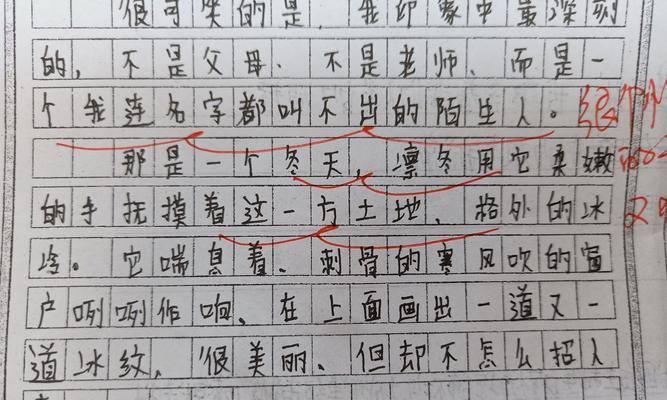 很可笑的是，我印象中最深刻
的，不是父母、不是老师、而是一
个我连名字都叫不出的陌生人。
那是一个冬天，凛冬用它柔嫩
的手抚摸着这一方土地、格外的冰
冷。它喘息着、刺骨的寒风吹的窗
户咧咧作响、在上面画出一道又一
道冰纹、很美丽、但却不怎么招人